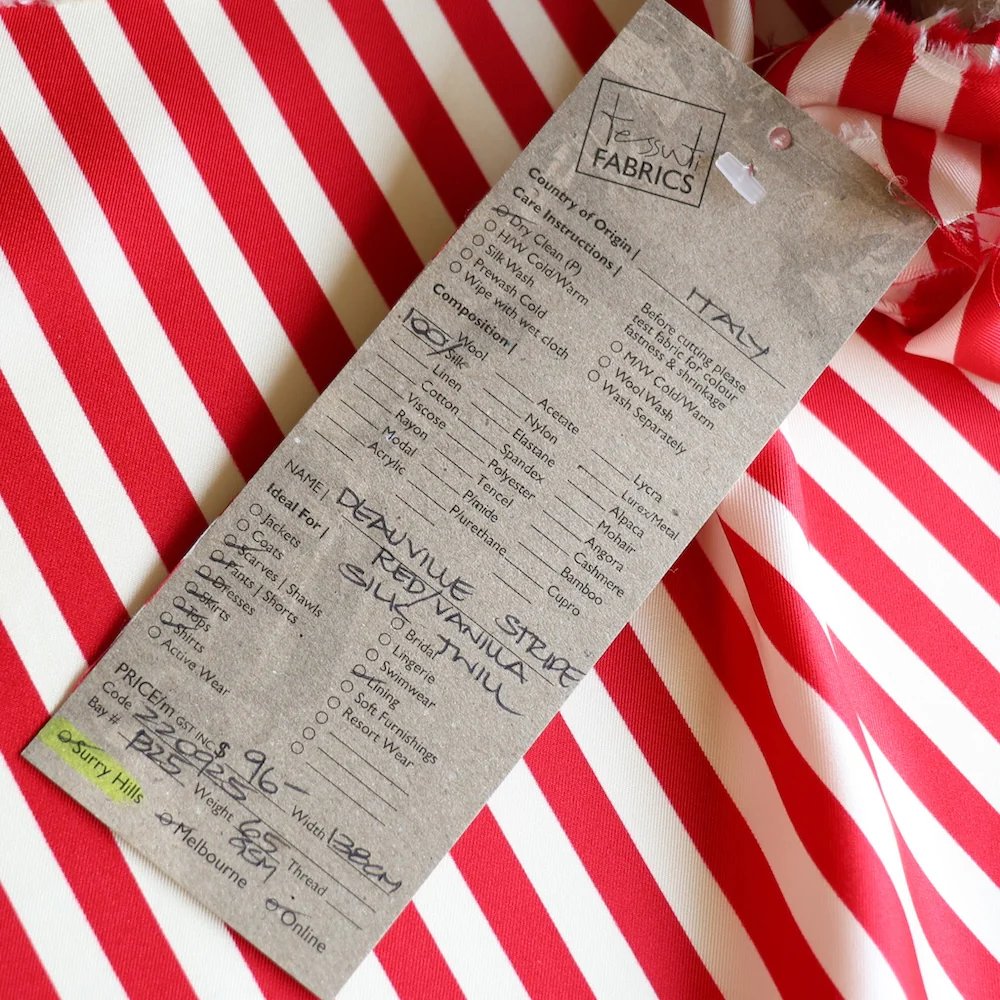 tessuti
FABRICS
Country of Origin | ITALY
Care Instructions |
Dry Clean (P)
H/W Cold/Warm
Silk Wash
Prewash Cold
Wipe with wet cloth
Before cutting please
test fabric for colour
fastness & shrinkage
M/W Cold/Warm
Wool Wash
Wash Separately
Composition |
Wool
100% Silk
Linen
Cotton
Viscose
Rayon
Modal
Acrylic
Acetate
Nylon
Elastane
Spandex
Polyester
Tencel
P/mide
P/urethane
Lycra
Lurex/Metal
Alpaca
Mohair
Angora
Cashmere
Bamboo
Cupro
NAME | DEAUVILLE STRIPE
RED/VANILLA
SILK TWILL
Ideal For |
Jackets
Coats
Scarves | Shawls
Pants | Shorts
Dresses
Skirts
Tops
Shirts
Active Wear
Bridal
Lingerie
Swimwear
Lining
Soft Furnishings
Resort Wear
PRICE/m GST INC $ 96-
Code 220925 Width 138CM
Bay # B25 Weight 65 GSM Thread
Surry Hills
Melbourne
Online